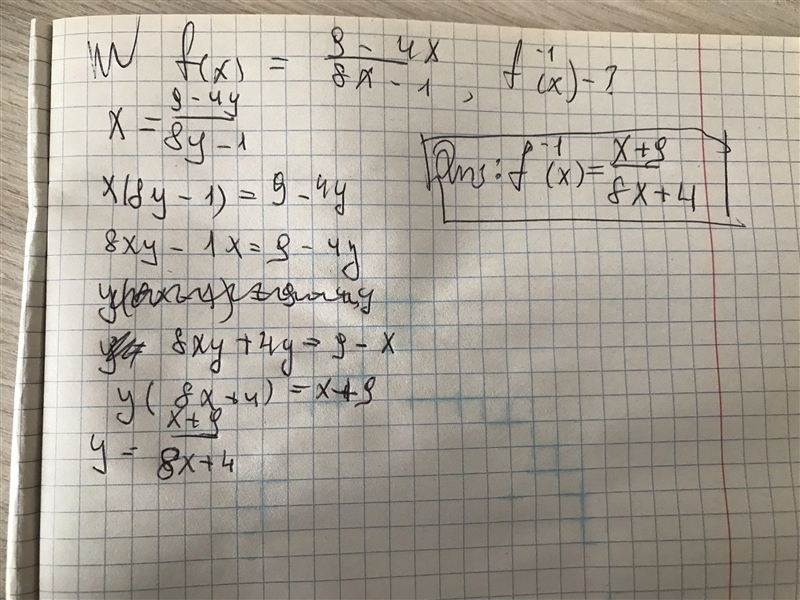 f(x) = 9 - 4x / 8x - 1 , f^-1(x) - ?
x = 9 - 4y / 8y - 1
x(8y - 1) = 9 - 4y
8xy - 1x = 9 - 4y
8xy + 4y = 9 - x
y(8x + 4) = x + 9
y = x + 9 / 8x + 4
Ans: f^-1(x) = x + 9 / 8x + 4